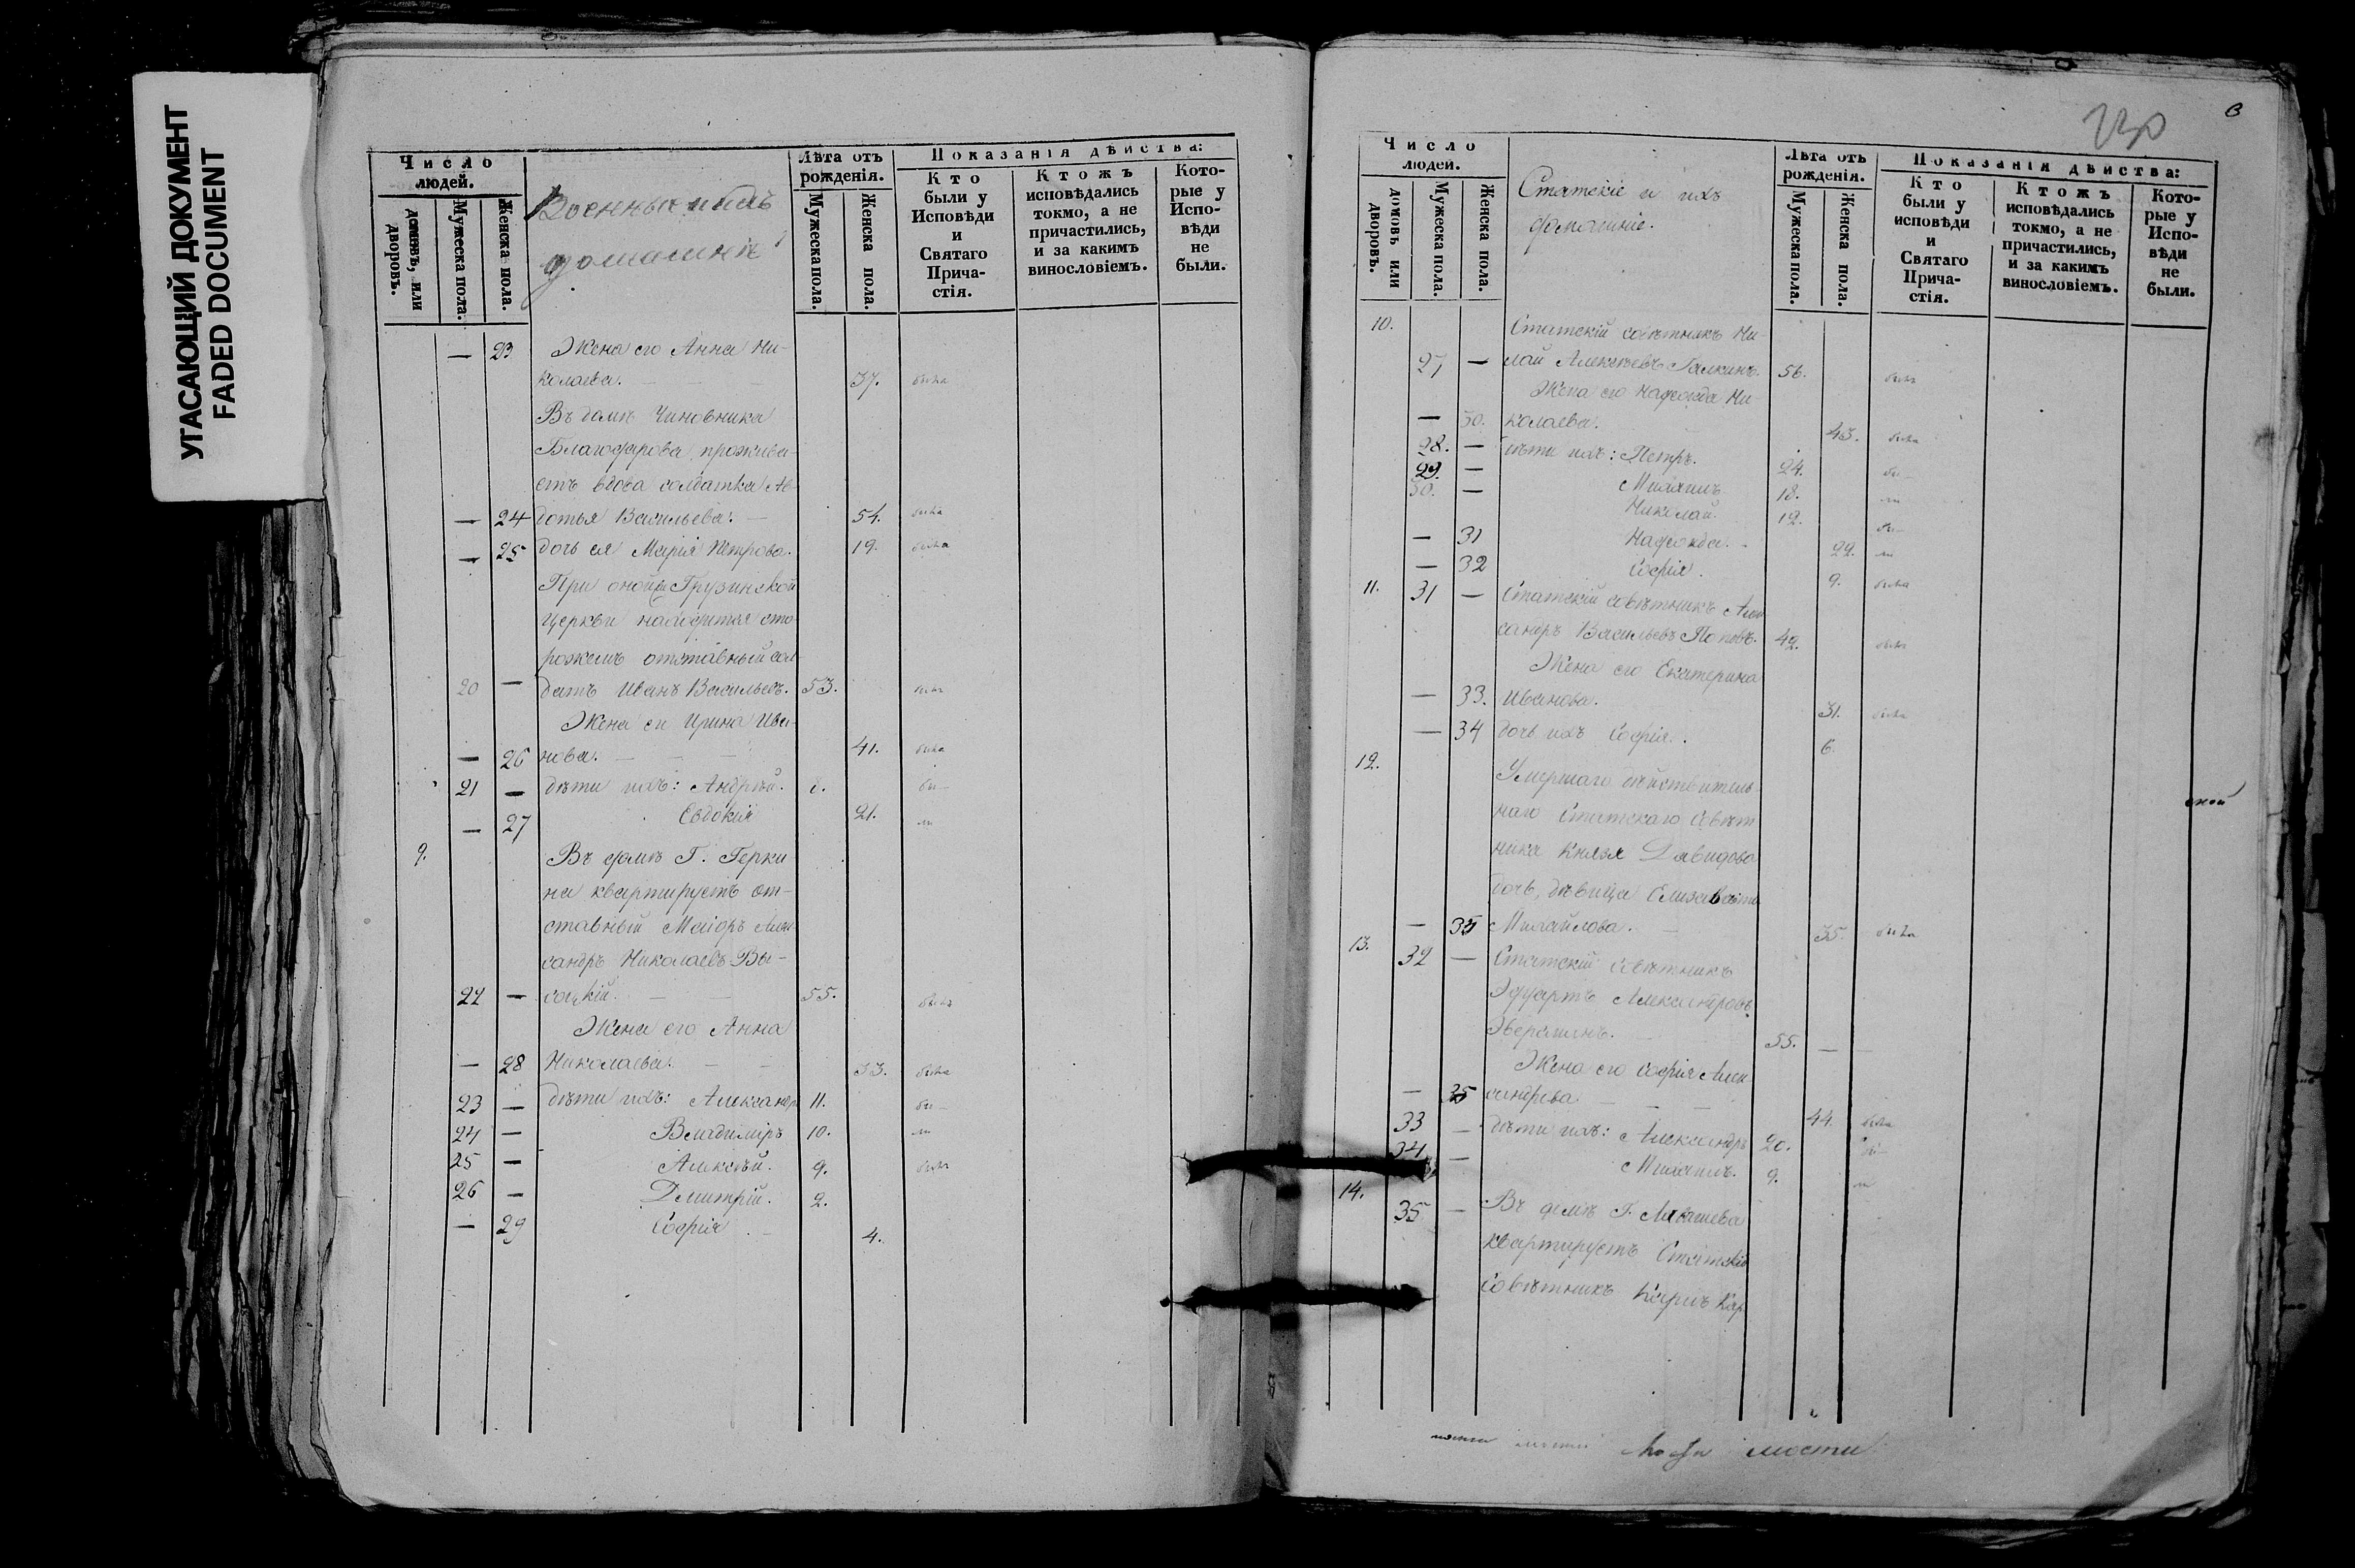 УГАСАЮЩИЙ ДОКУМЕНТ
FADED DOCUMENT
Число людей.
домовъ, или дворовъ.
Мужеска пола.
Женска пола.
Военные и ихъ
домашніе
Лѣта отъ рожденія.
Мужеска пола.
Женска пола.
Показанія дѣйства:
Кто были у Исповѣди и Святаго Прича-стія.
Ктожъ исповѣдались токмо, а не причастились, и за какимъ винословіемъ.
Кото-рые у Испо-вѣди не были.
— 23 Жена его Анна Ни-
колаева. 37. была
Въ домѣ Чиновника
Благофарова прожива-
етъ вдова солдатка Ав-
— 24 дотья Васильева. 54. была
— 25 дочь ея Марія Петрова. 19. была
При оной Грузинской
церкви находится сто-
рожемъ отставный сол-
20 — датъ Иванъ Васильевъ. 53. былъ
Жена его Ирина Ива-
— 26 нова. 41. была
21 — дѣти ихъ: Андрей. 8. бы-
— 27 Евдокія 21. ли
9. Въ домѣ Г. Герки-
на квартируетъ от-
ставный Маіоръ Алек-
сандръ Николаевъ Вы-
22 — соцкій. 55. былъ
Жена его Анна
— 28 Николаева. 33. была
23 — дѣти ихъ: Александръ 11. бы-
24 — Владиміръ 10. ли
25 — Алексѣй. 9. былъ
26 — Дмитрій. 2.
— 29 Софія. 4.
230
Число людей.
домовъ или дворовъ.
Мужеска пола.
Женска пола.
Статскіе и ихъ
домашніе.
Лѣта отъ рожденія.
Мужеска пола.
Женска пола.
Показанія дѣйства:
Кто были у исповѣди и Святаго Прича-стія.
Ктожъ исповѣдались токмо, а не причастились, и за какимъ винословіемъ.
Кото-рые у Испо-вѣди не были.
10. Статскій совѣтникъ Ни-
27 — лай Алексѣевъ Галкинъ. 56. былъ
Жена его Надежда Ни-
— 30. колаева. 43. была
28. — дѣти ихъ: Петръ. 24. бы-
29. — Михаилъ 18. ли
30. — Николай. 12. бы-
— 31 Надежда. 22. ли
— 32 Софія. 9. была
11. 31 — Статскій совѣтникъ Алек
сандръ Васильевъ Поповъ. 42. былъ
Жена его Екатерина
— 33. Иванова. 31. была
— 34 дочь ихъ Софія. 6.
12. Умершаго дѣйствитель-
наго Статскаго Совѣт
ника Князя Давидова
дочь, дѣвица Елизавета
— 35 Михайлова. 35. была
13. 32 — Статскій совѣтникъ
Эдуартъ Александровъ
55. —
Жена его Софія Алек
— 35 сандрова 44. была
33 — дѣти ихъ: Александръ 20. бы-
34 — Михаилъ. 9. ли
14. 35 — Въ домѣ Г.
квартируетъ Статскій
совѣтникъ Карлъ Кар